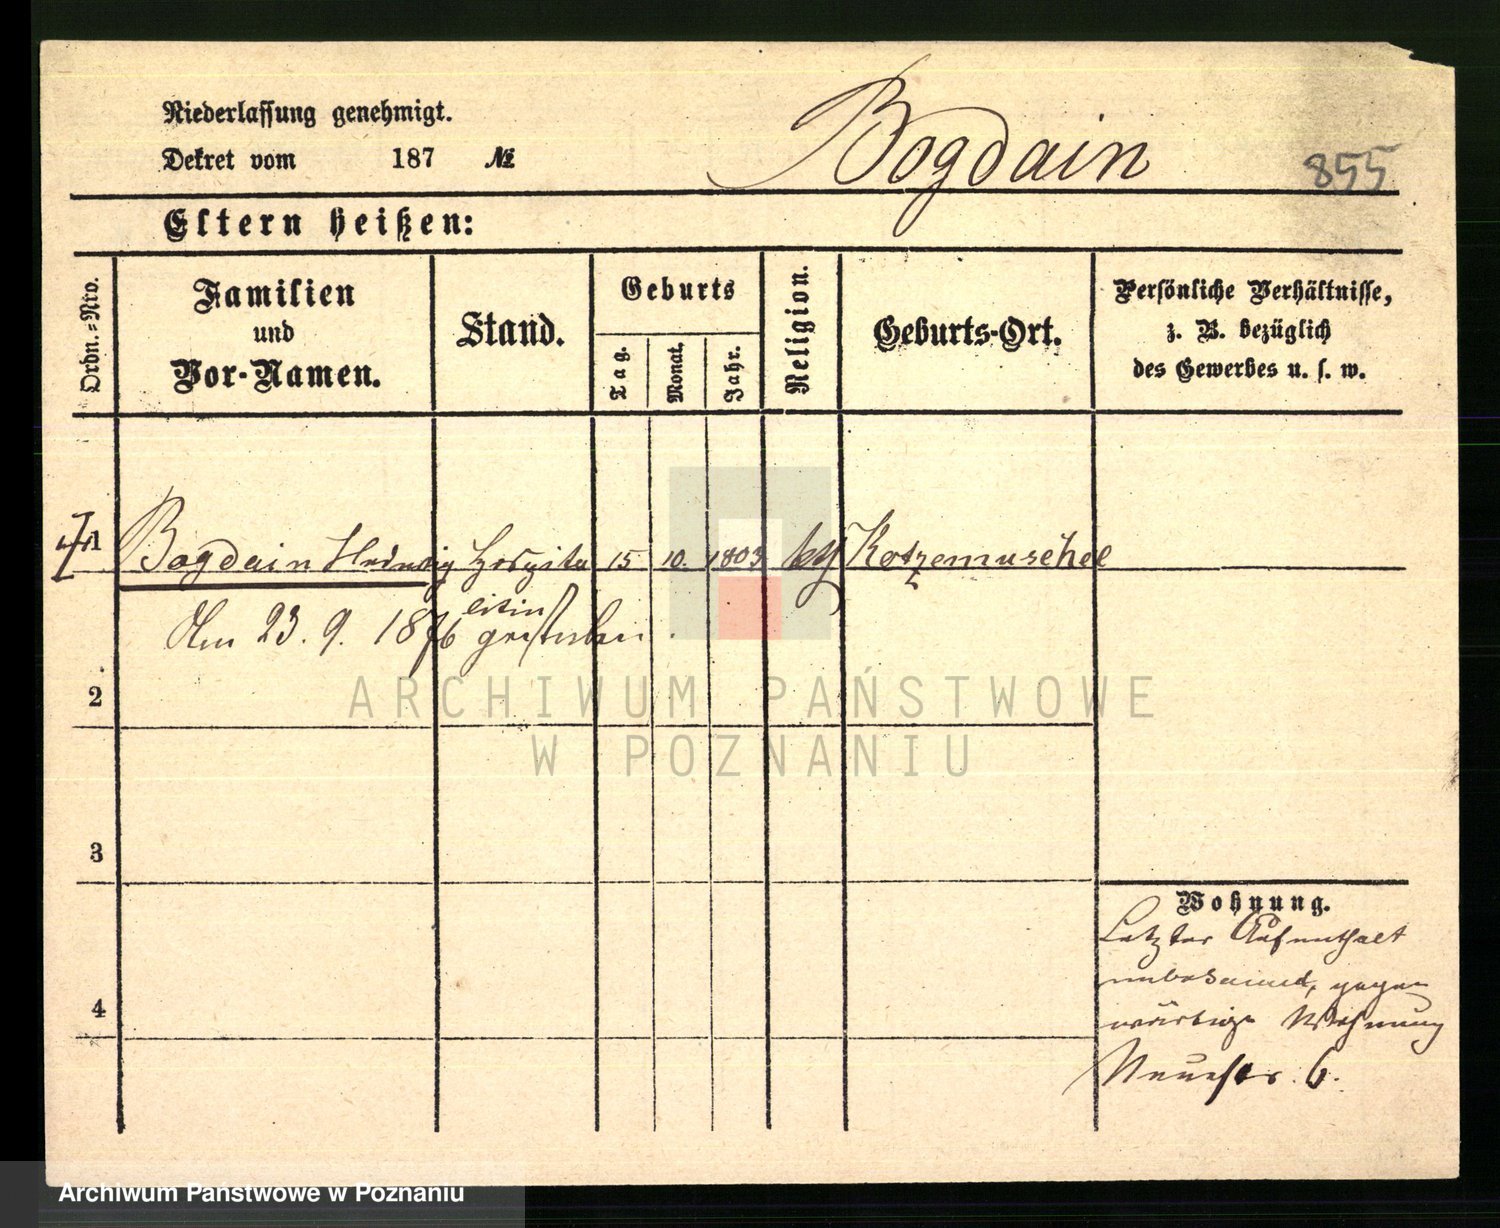 Niederlassung genehmigt.
Dekret vom 187 №
Bogdain
855
Eltern heißen:
Ordn.-Nro.
Familien
und
Vor-Namen.
Stand.
Geburts
Tag.
Monat.
Jahr.
Religion.
Geburts-Ort.
Persönliche Verhältnisse,
z. B. bezüglich
des Gewerbes u. s. w.
1 Bogdain Hedwig Hospita 15 10. 1803 Kotzemuschel
litin
Am 23. 9. 1876 gestorben.
2
ARCHIWUM PAŃSTWOWE
W POZNANIU
3
Wohnung.
Letzter Aufenthalt
unbekannt, gegen
wärtige Wohnung
4
6.
Archiwum Państwowe w Poznaniu